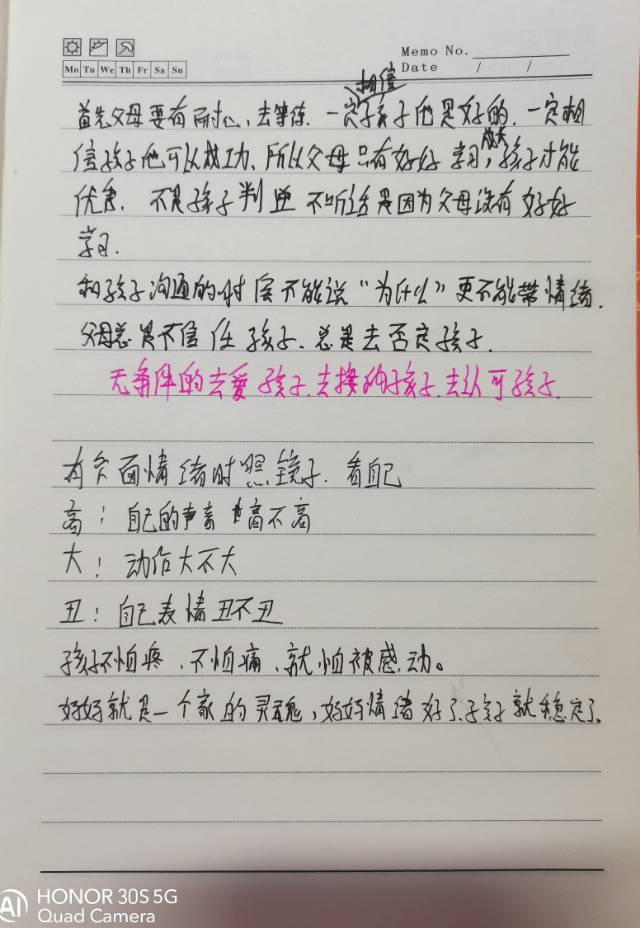 Memo No.
Mo Tu We Th Fr Sa Su
Date / /
相信
首先父母要有耐心,去等待.一定孩子他是好的.一定相
信孩子他可以成功、所以父母只有好好学习,孩子才能
成长
优秀.不是孩子判逆不听话是因为父母没有好好
学习.
和孩子沟通的时候不能说“为什么”更不能带情绪.
父母总是不信任孩子.总是去否定孩子.
无条件的去爱孩子.去接纳孩子.去认可孩子.
有负面情绪时照镜子.看自己
高:自己的声音高不高
大:动作大不大
丑:自己表情丑不丑
孩子不怕疼、不怕痛、就怕被感动。
妈妈就是一个家的灵魂,妈妈情绪好了.孩子就稳定了.
AI
HONOR 30S 5G
Quad Camera